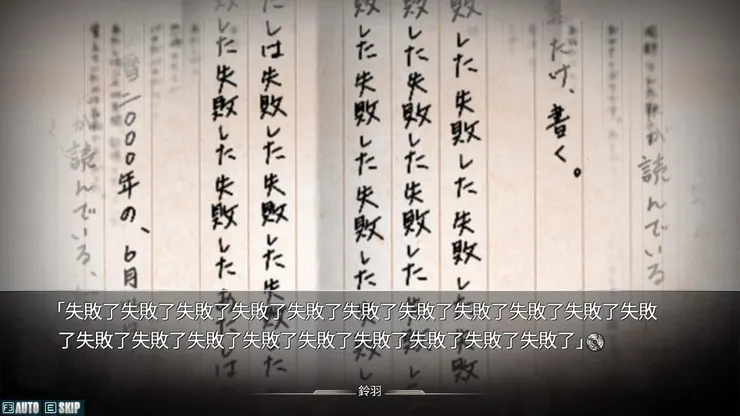 が読んでいる
だけ、書く。
敗した失敗した失敗した失敗
敗した失敗した失敗した失敗し
敗した失敗した失敗した失敗し
たしは失敗した失敗した失敗した
した失敗した失敗したあたしは
二〇〇〇年の、6月
が読んでいる、
「失敗了失敗了失敗了失敗了失敗了失敗了失敗了失敗了失敗了失敗了失敗
了失敗了失敗了失敗了失敗了失敗了失敗了失敗了失敗了失敗了」
鈴羽
AUTO SKIP